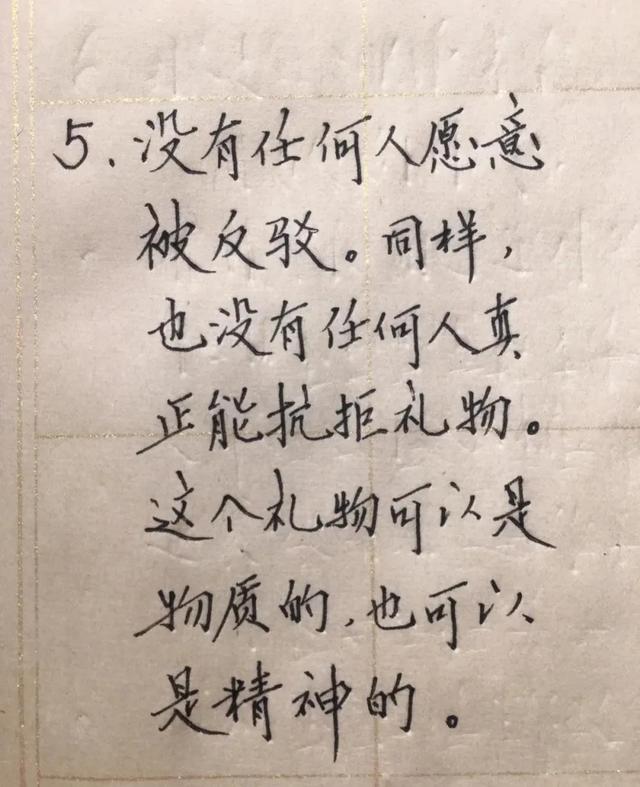 5、没有任何人愿意
被反驳。同样，
也没有任何人真
正能抗拒礼物。
这个礼物可以是
物质的，也可以
是精神的。